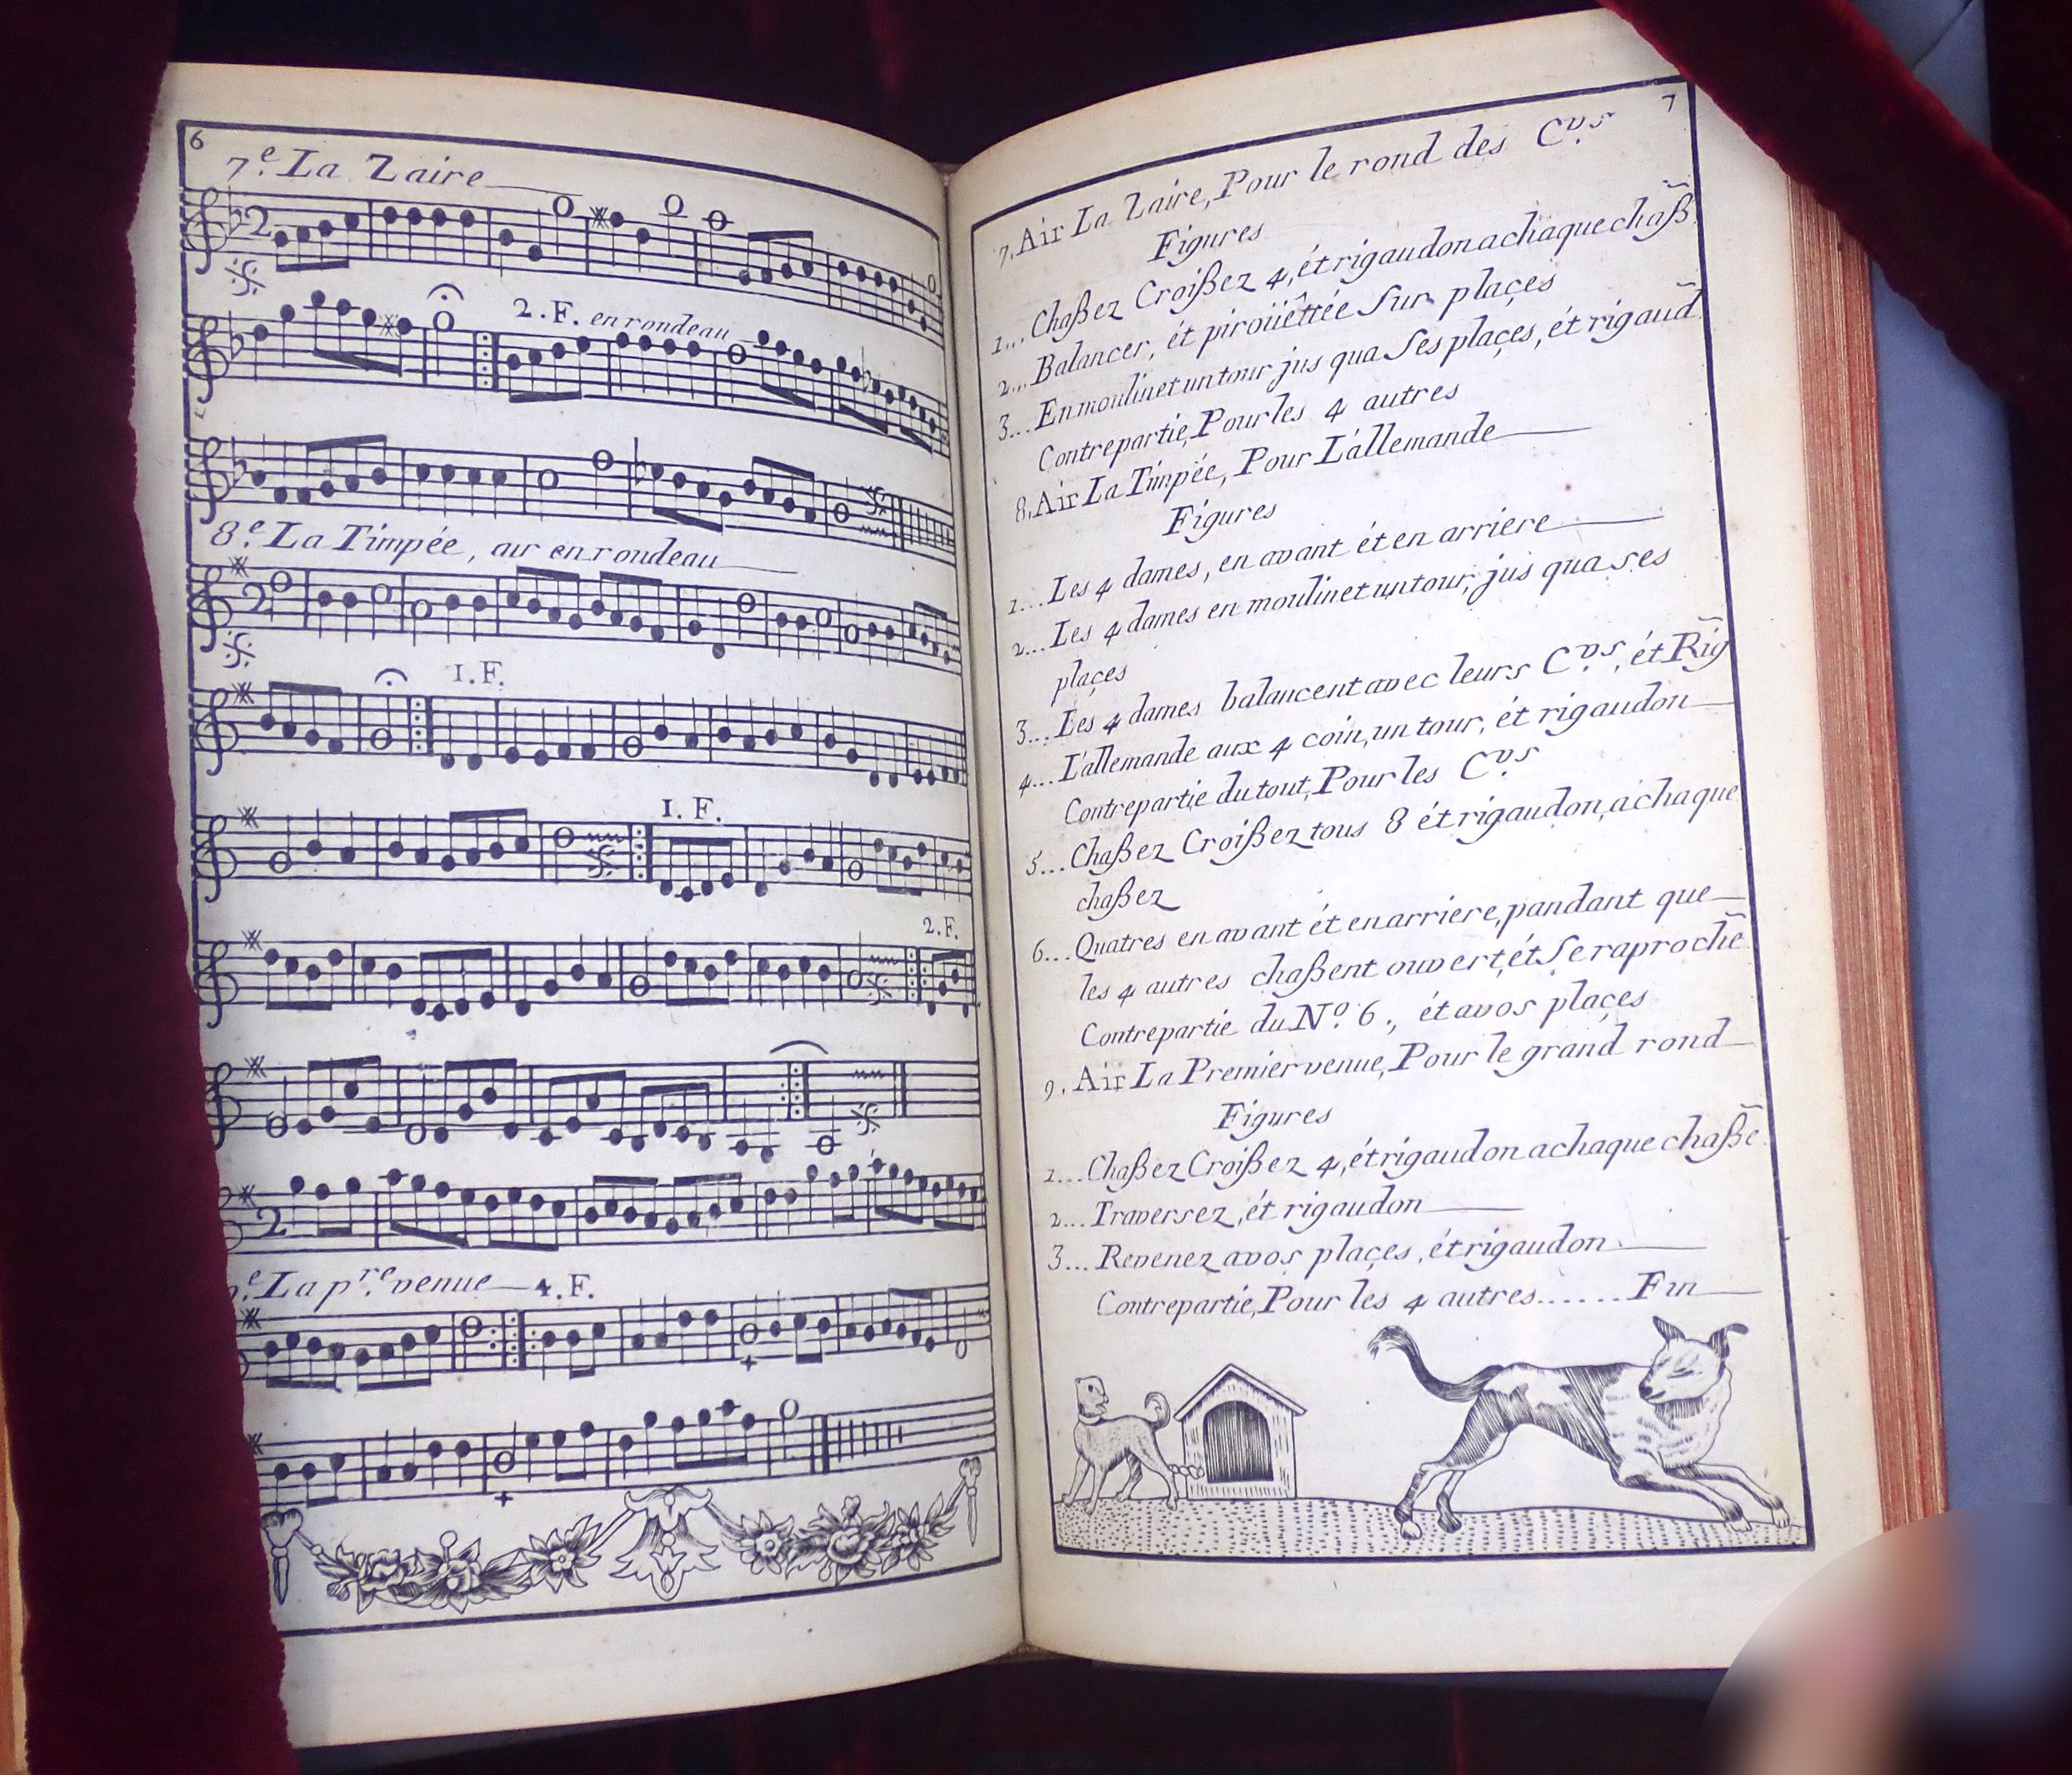 6
7.e La Zaire
2
2. F. en rondeau
8.e La Timpée, air en rondeau
2
1. F.
1. F.
2. F.
2
.e La p.re venue 4. F.
7
7. Air La Zaire, Pour le rond des C.vs
Figures
1... Chaßez Croißez 4, ét rigaudon a chaque chaß̃
2... Balancer, ét piroüêttée Sur plaçes
3... En moulinet un tour jus qua Ses plaçes, ét rigaud̃
Contrepartie, Pour les 4 autres
8. Air La Timpée, Pour L'allemande
Figures
1... Les 4 dames, en avant ét en arriere
2... Les 4 dames en moulinet un tour, jus qua ses
plaçes
3... Les 4 dames balancent avec leurs C.vs, ét Rig̃
4... L'allemande aux 4 coin, un tour, ét rigaudon
Contrepartie du tout, Pour les C.vs
5... Chaßez Croißez tous 8 ét rigaudon, a chaque
chaßez
6... Quatres en avant ét en arriere, pandant que
les 4 autres chaßent ouvert, ét Se raprochẽ
Contrepartie du N.o 6., ét a vos plaçes
9. Air La Premier venue, Pour le grand rond
Figures
1... Chaßez Croißez 4, ét rigaudon a chaque chaßẽ
2... Traversez, ét rigaudon
3... Revenez a vos plaçes, ét rigaudon
Contrepartie, Pour les 4 autres...... Fin